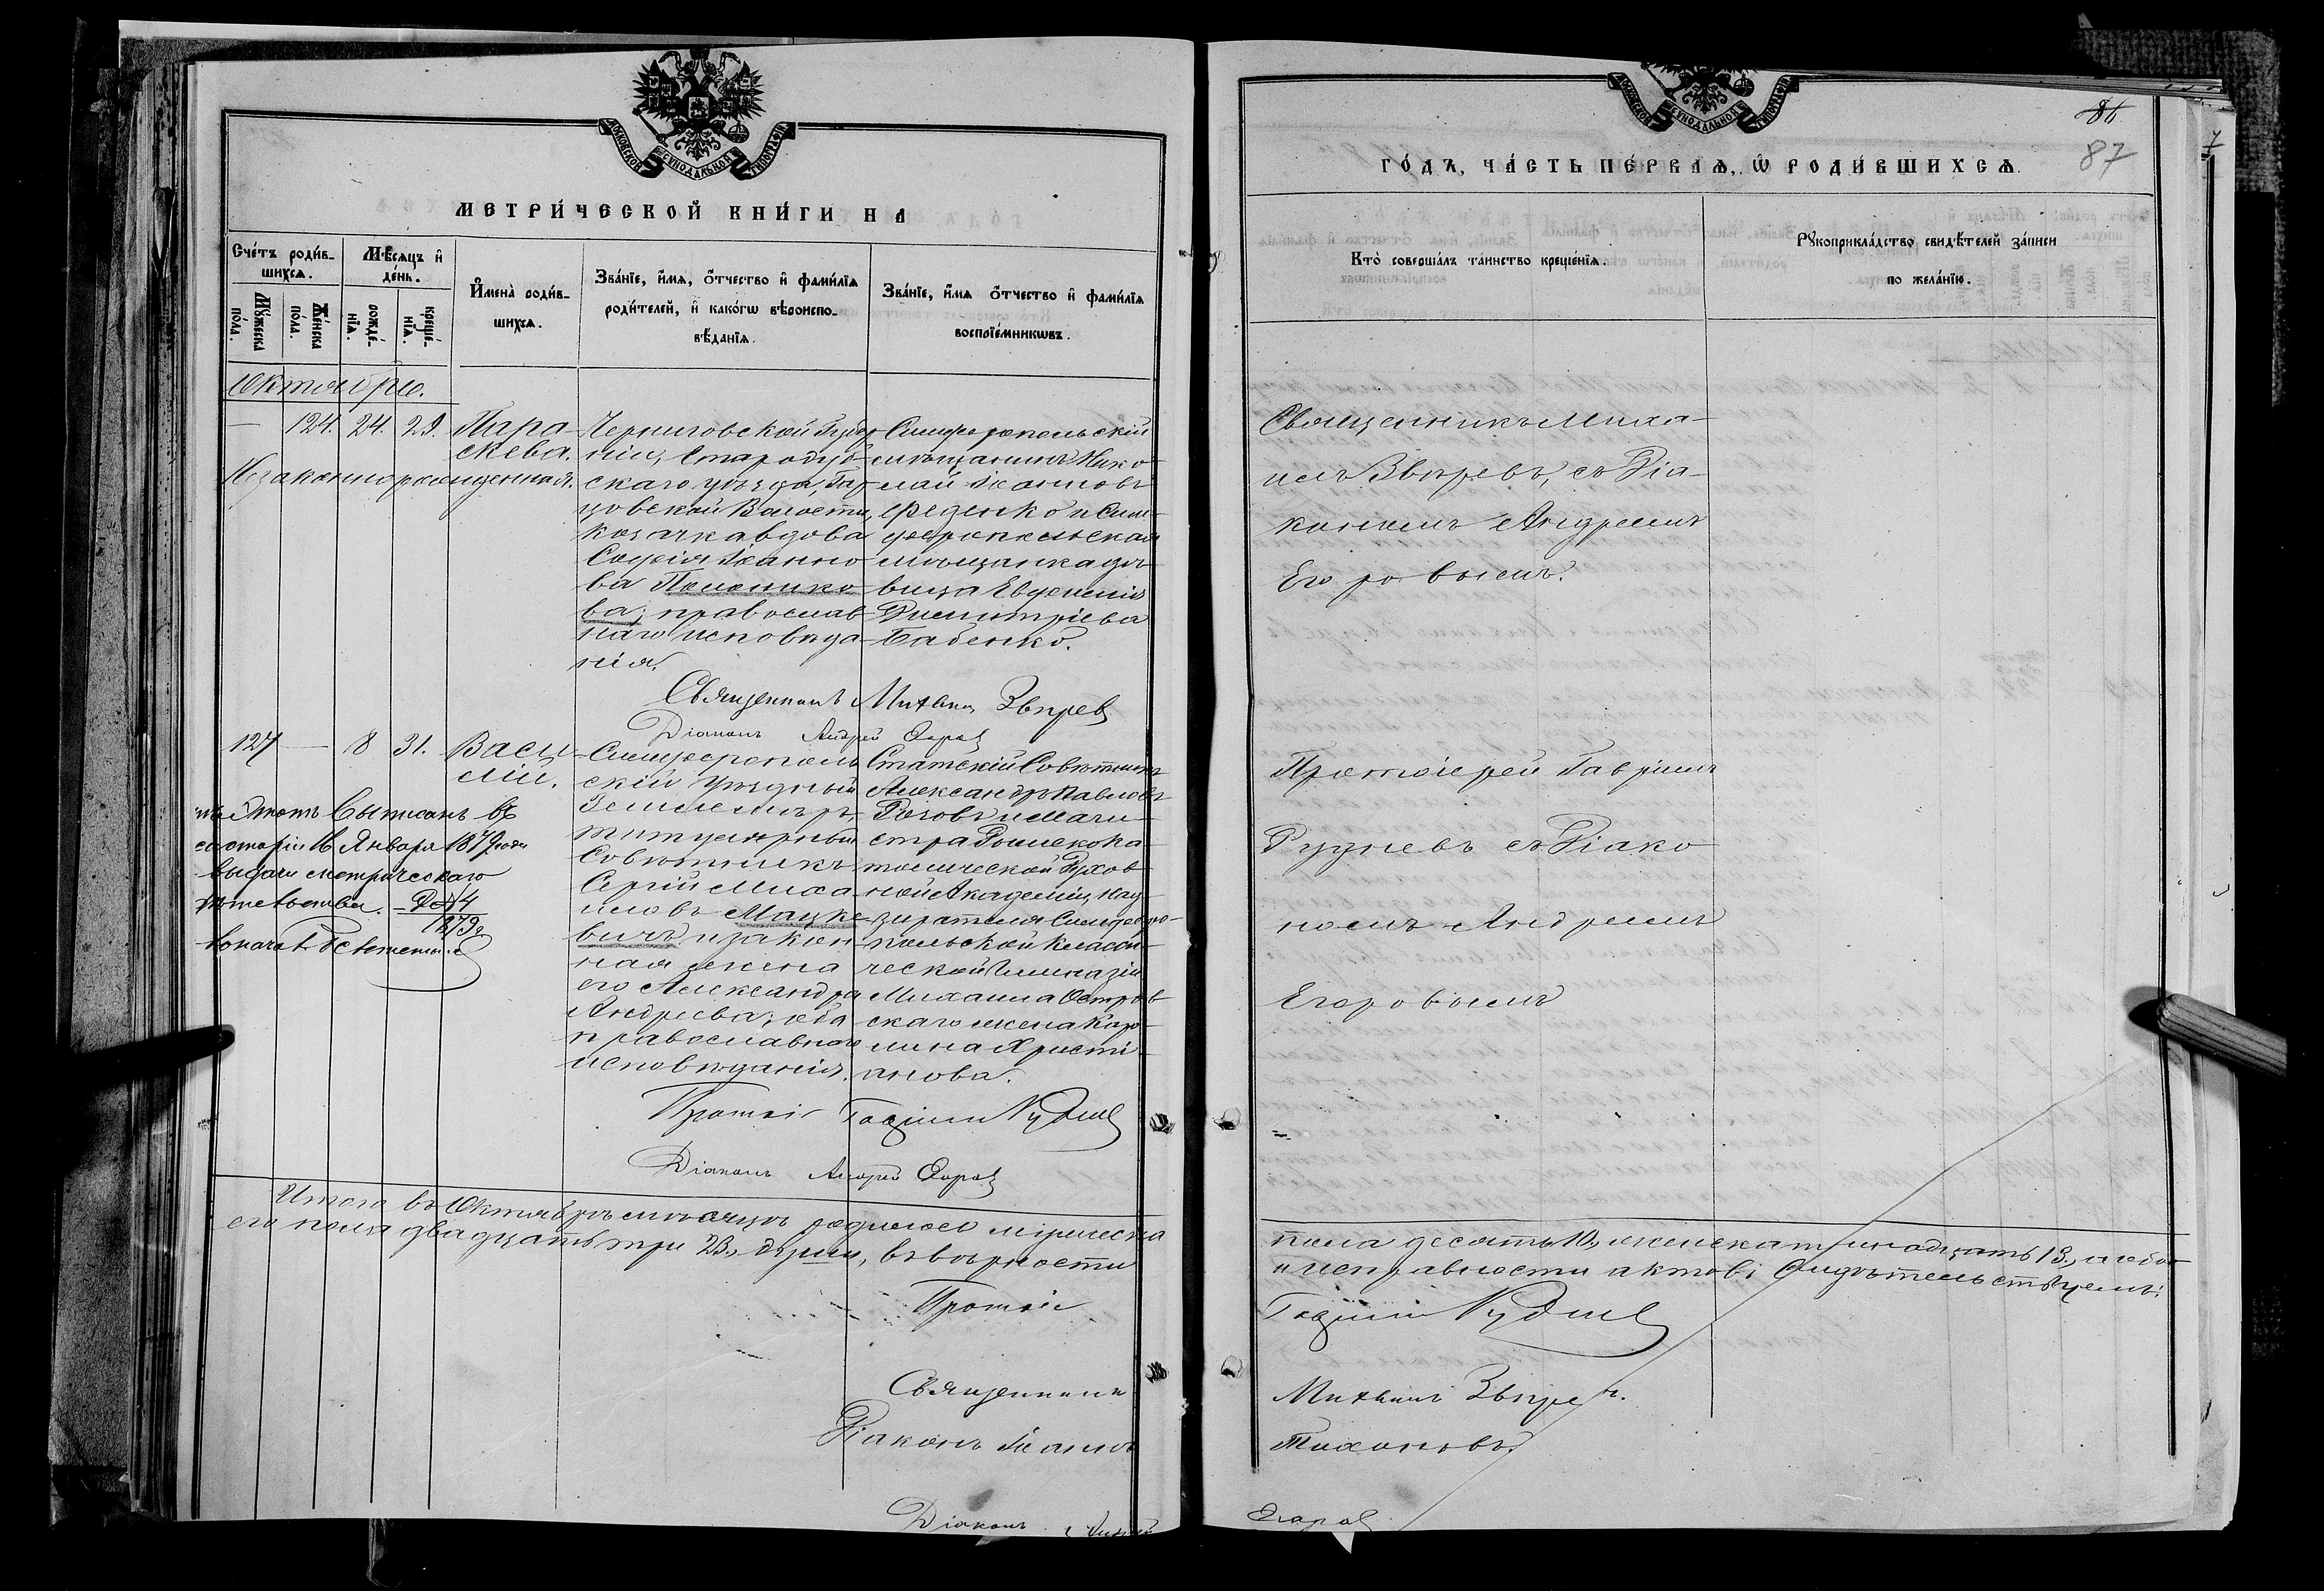 МОСКОВСКОЙ СѴНОДАЛЬНОЙ ТИПОГРАФІИ
МЕТРИ́ЧЕСКОЙ КНИ́ГИ НА
Сче́тъ роди́в-
шихсѧ.
Мѣ́сѧцъ и҆
де́нь.
Мꙋ́жеска
по́ла.
Же́нска
по́ла.
рожде́-
нїѧ.
креще́-
нїѧ.
И҆мена̀ роди́в-
шихсѧ.
Зва́нїе, и҆́мѧ, ѻ҆́тчество и҆ фами́лїѧ
роди́телей, и҆ како́гѡ вѣроиспо-
вѣ́данїѧ.
Зва́нїе, и҆́мѧ ѻ҆́тчество и҆ фами́лїѧ
воспрїе́мникѡвъ.
Октябрь.
— 124. 24. 29.
Пара-
скева.
Незаконнорожденная.
Черниговской Губер-
ніи, Стародуб-
скаго уѣзда, Га-
цовской Волости,
козачка вдова
Софія Іоанно-
ва
ва, православ-
наго исповѣда-
нія.
Симферопольскій
мѣщанинъ Нико-
лай Іоанновъ
Феденко и Сим-
феропольская
мѣщанка дѣ-
вица Евфимія
Димитріева
Бабенко.
Священникъ Михаилъ Звѣрев
Діаконъ Андрей Егоров
127 — 8 31.
Васи-
лій.
Симферополь-
скій Уѣздный
Землемѣръ,
титулярный
Совѣтникъ
Сергій Миха-
иловъ Мацке-
вичъ и закон-
ная жена
его Александра
Андреева, оба
православнаго
исповѣданія.
Статскій Совѣтникъ
Александръ Павловъ
Розовъ и Маги-
стра Римско Ка-
толической Духов-
ной Академіи, над-
зирателя Симферо-
польской Класси-
ческой Гимназіи
Михаила Остров-
скаго жена Каро-
лина Христі-
анова.
выписанъ въ
16 Января 1879 года
выдачи метрическаго
№ 4
1879
Протоіе Гавріилъ Руднев
Діаконъ Андрей Егоров
Итого въ Октябрѣ мѣсяцѣ родилось мужеска
его пола двадцать три 23, души, въ вѣрности
Протоіе
Священникъ
Діаконъ Іоаннъ
Діаконъ Андрей
МОСКОВСКОЙ СѴНОДАЛЬНОЙ ТИПОГРАФІИ
86
87
ГО́ДЪ, ЧА́СТЬ ПЕ́РВАѦ, Ѡ҆ РОДИ́ВШИХСѦ.
Кто̀ соверша́лъ та́инство креще́нїѧ.
Рꙋкоприкла́дство свидѣ́телей за́писи
по жела́нїю.
Священникъ Миха-
илъ Звѣревъ, съ Діа-
кономъ Андреемъ
Егоровымъ.
Протоіерей Гавріилъ
Рудневъ съ Діако-
номъ Андреемъ
Егоровымъ
пола десять 10, женска тринадцать 13, а обо-
и исправности актовъ свидѣтельствуемъ:
Гавріилъ Руднев
Михаилъ Звѣревъ.
Тихоновъ.
Егоров